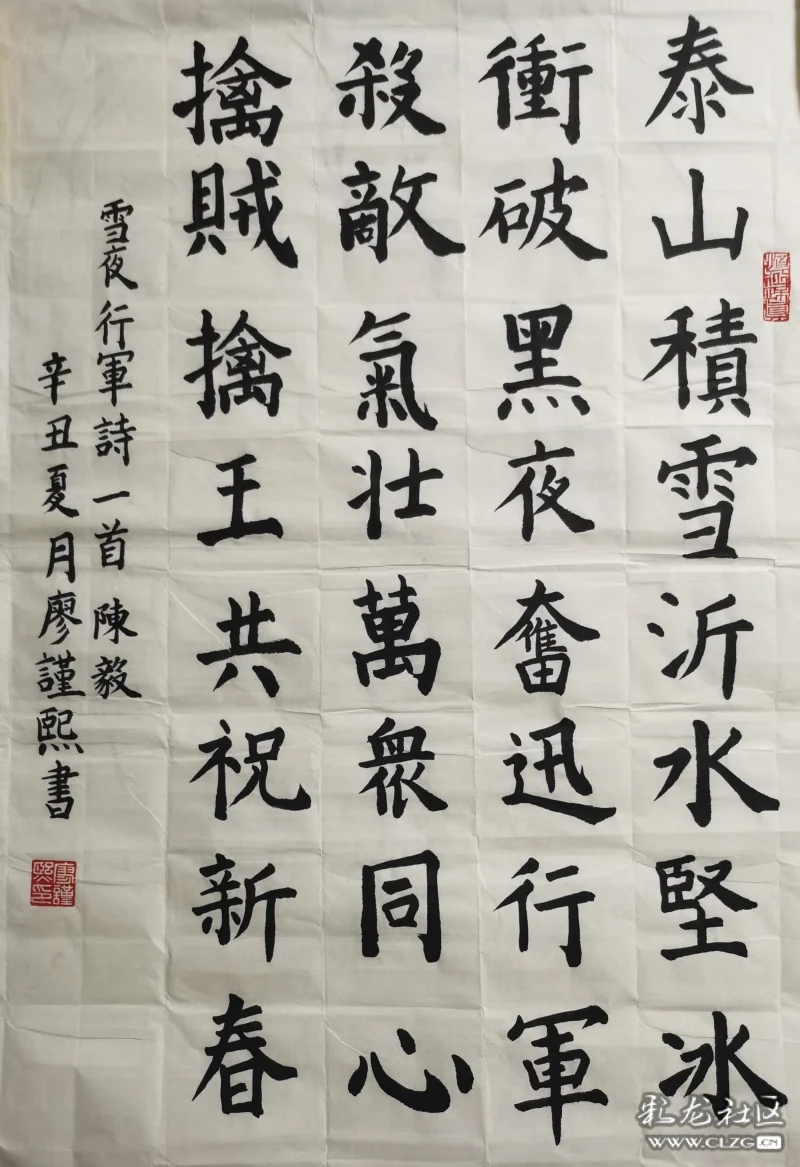 泰山積雪沂水堅冰
衝破黑夜奮迅行軍
殺敵氣壯萬衆同心
擒賊擒王共祝新春
雪夜行軍詩一首陳毅
辛丑夏月廖謹熙書
廖謹熙印
彩龙社区
WWW.CLZG.CN